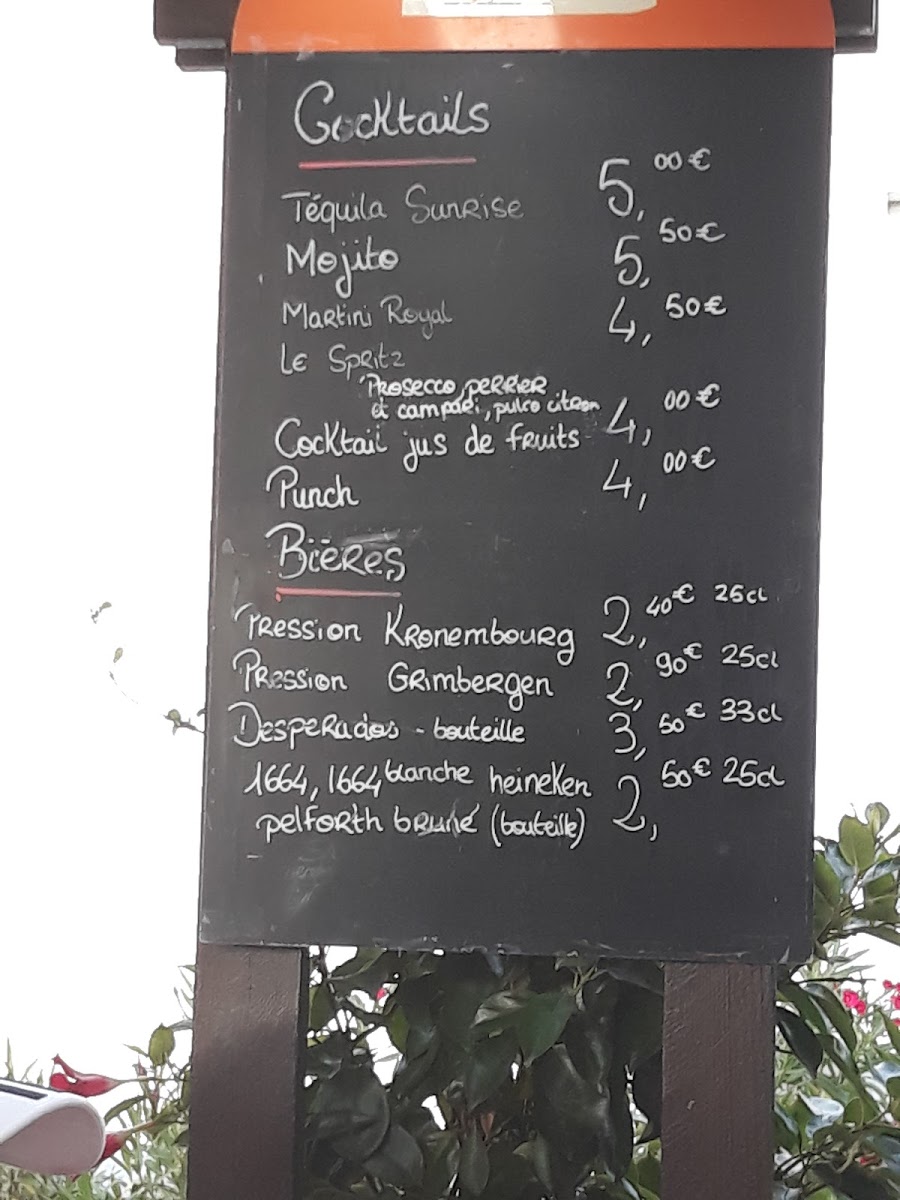 Cocktails
Téquila Sunrise 5,00€
Mojito 5,50€
Martini Royal 4,50€
Le Spritz
Prosecco, perrier
et campari, pulco citron
Cocktail jus de fruits 4,00€
Punch 4,00€
Bières
Pression Kronembourg 2,40€ 25cl
Pression Grimbergen 2,90€ 25cl
Desperados - bouteille 3,50€ 33cl
1664, 1664 blanche heineken 2,50€ 25cl
pelforth brune (bouteille)